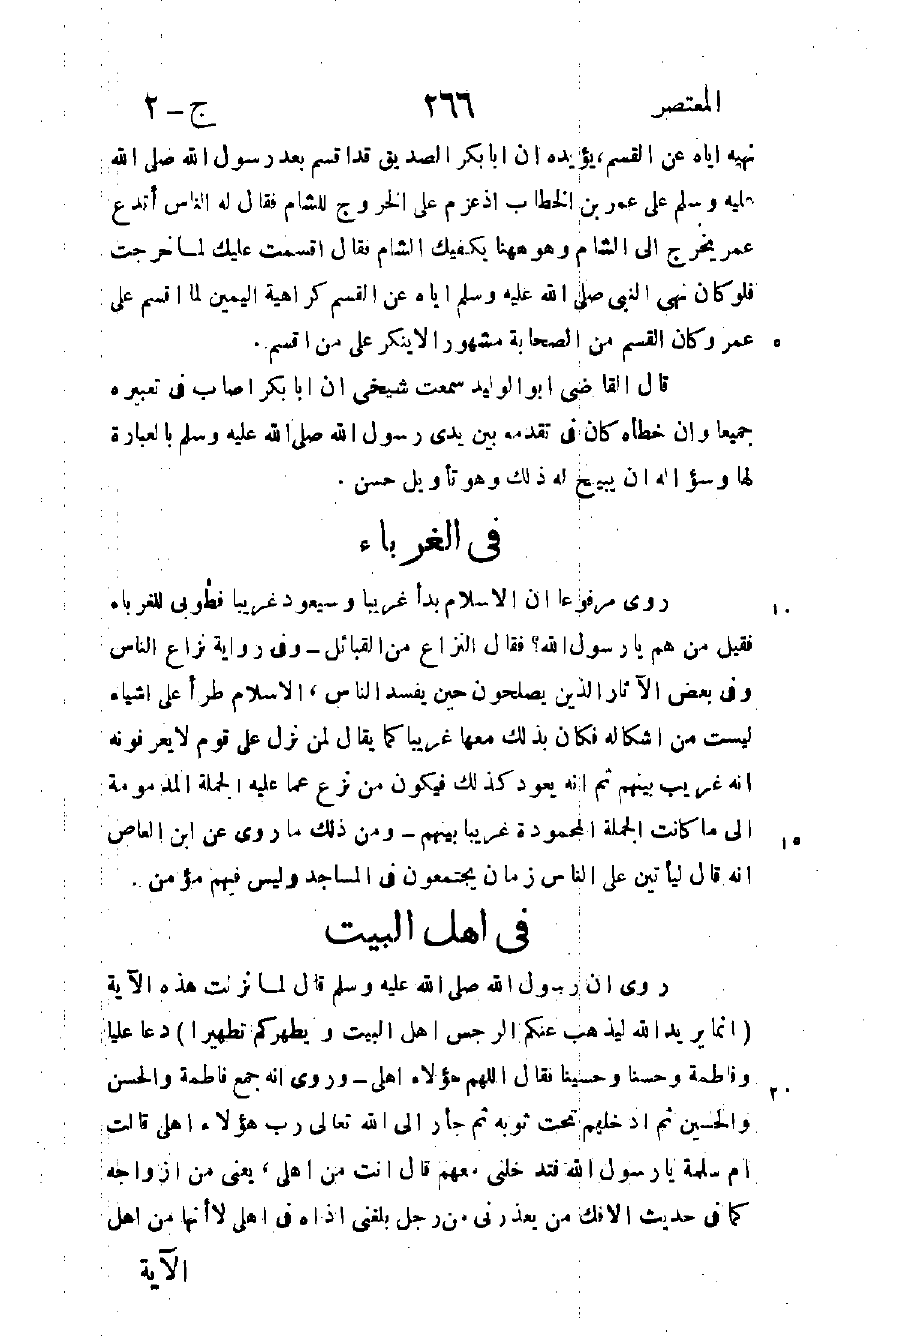 المعتصر ٢٦٦ ج - ٢
نهيه اياه عن القسم، يؤيده ان ابا بكر الصديق قد اقسم بعد رسول الله صلى الله
عليه وسلم على عمر بن الخطاب اذ عزم على الخروج للشام فقال له الناس أتدع
عمر يخرج الى الشام وهو ههنا يكفيك الشام فقال اقسمت عليك لما خرجت
فلو كان نهى النبي صلى الله عليه وسلم اياه عن القسم كراهية اليمين لما اقسم على
عمر وكان القسم من الصحابة مشهورا لا ينكر على من اقسم . ٥
قال القاضى ابو الوليد سمعت شيخى ان ابا بكر اصاب فى تعبيره
جميعا وان خطأه كان فى تقدمه بين يدى رسول الله صلى الله عليه وسلم بالعبارة
لها وسؤاله ان يبيح له ذلك وهو تأويل حسن .
فى الغرباء
روى مرفوعا ان الاسلام بدأ غريبا وسيعود غريبا فطوبى للغرباء ١٠
فقيل من هم يا رسول الله؟ فقال النزاع من القبائل - وفى رواية نزاع الناس
وفى بعض الآثار الذين يصلحون حين يفسد الناس، الاسلام طرأ على اشياء
ليست من اشكاله فكان بذلك معها غريبا كما يقال لمن نزل على قوم لا يعرفونه
انه غريب بينهم ثم انه يعود كذلك فيكون من نزع عما عليه الجملة المذمومة
الى ما كانت الجملة المحمودة غريبا بينهم - ومن ذلك ما روى عن ابن العاص ١٥
انه قال ليأتين على الناس زمان يجتمعون فى المساجد وليس فيهم مؤمن .
فى اهل البيت
روى ان رسول الله صلى الله عليه وسلم قال لما نزلت هذه الآية
( انما يريد الله ليذهب عنكم الرجس اهل البيت ويطهركم تطهيرا ) دعا عليا
وفاطمة وحسنا وحسينا فقال اللهم هؤلاء اهلى - وروى انه جمع فاطمة والحسن ٢٠
والحسين ثم ادخلهم تحت ثوبه ثم جأر الى الله تعالى رب هؤلاء اهلى قالت
ام سلمة يا رسول الله فتدخلنى معهم قال انت من اهلى، يعنى من ازواجه
كما فى حديث الافك من يعذرنى من رجل بلغنى اذاه فى اهلى لا أنها من اهل
الآية